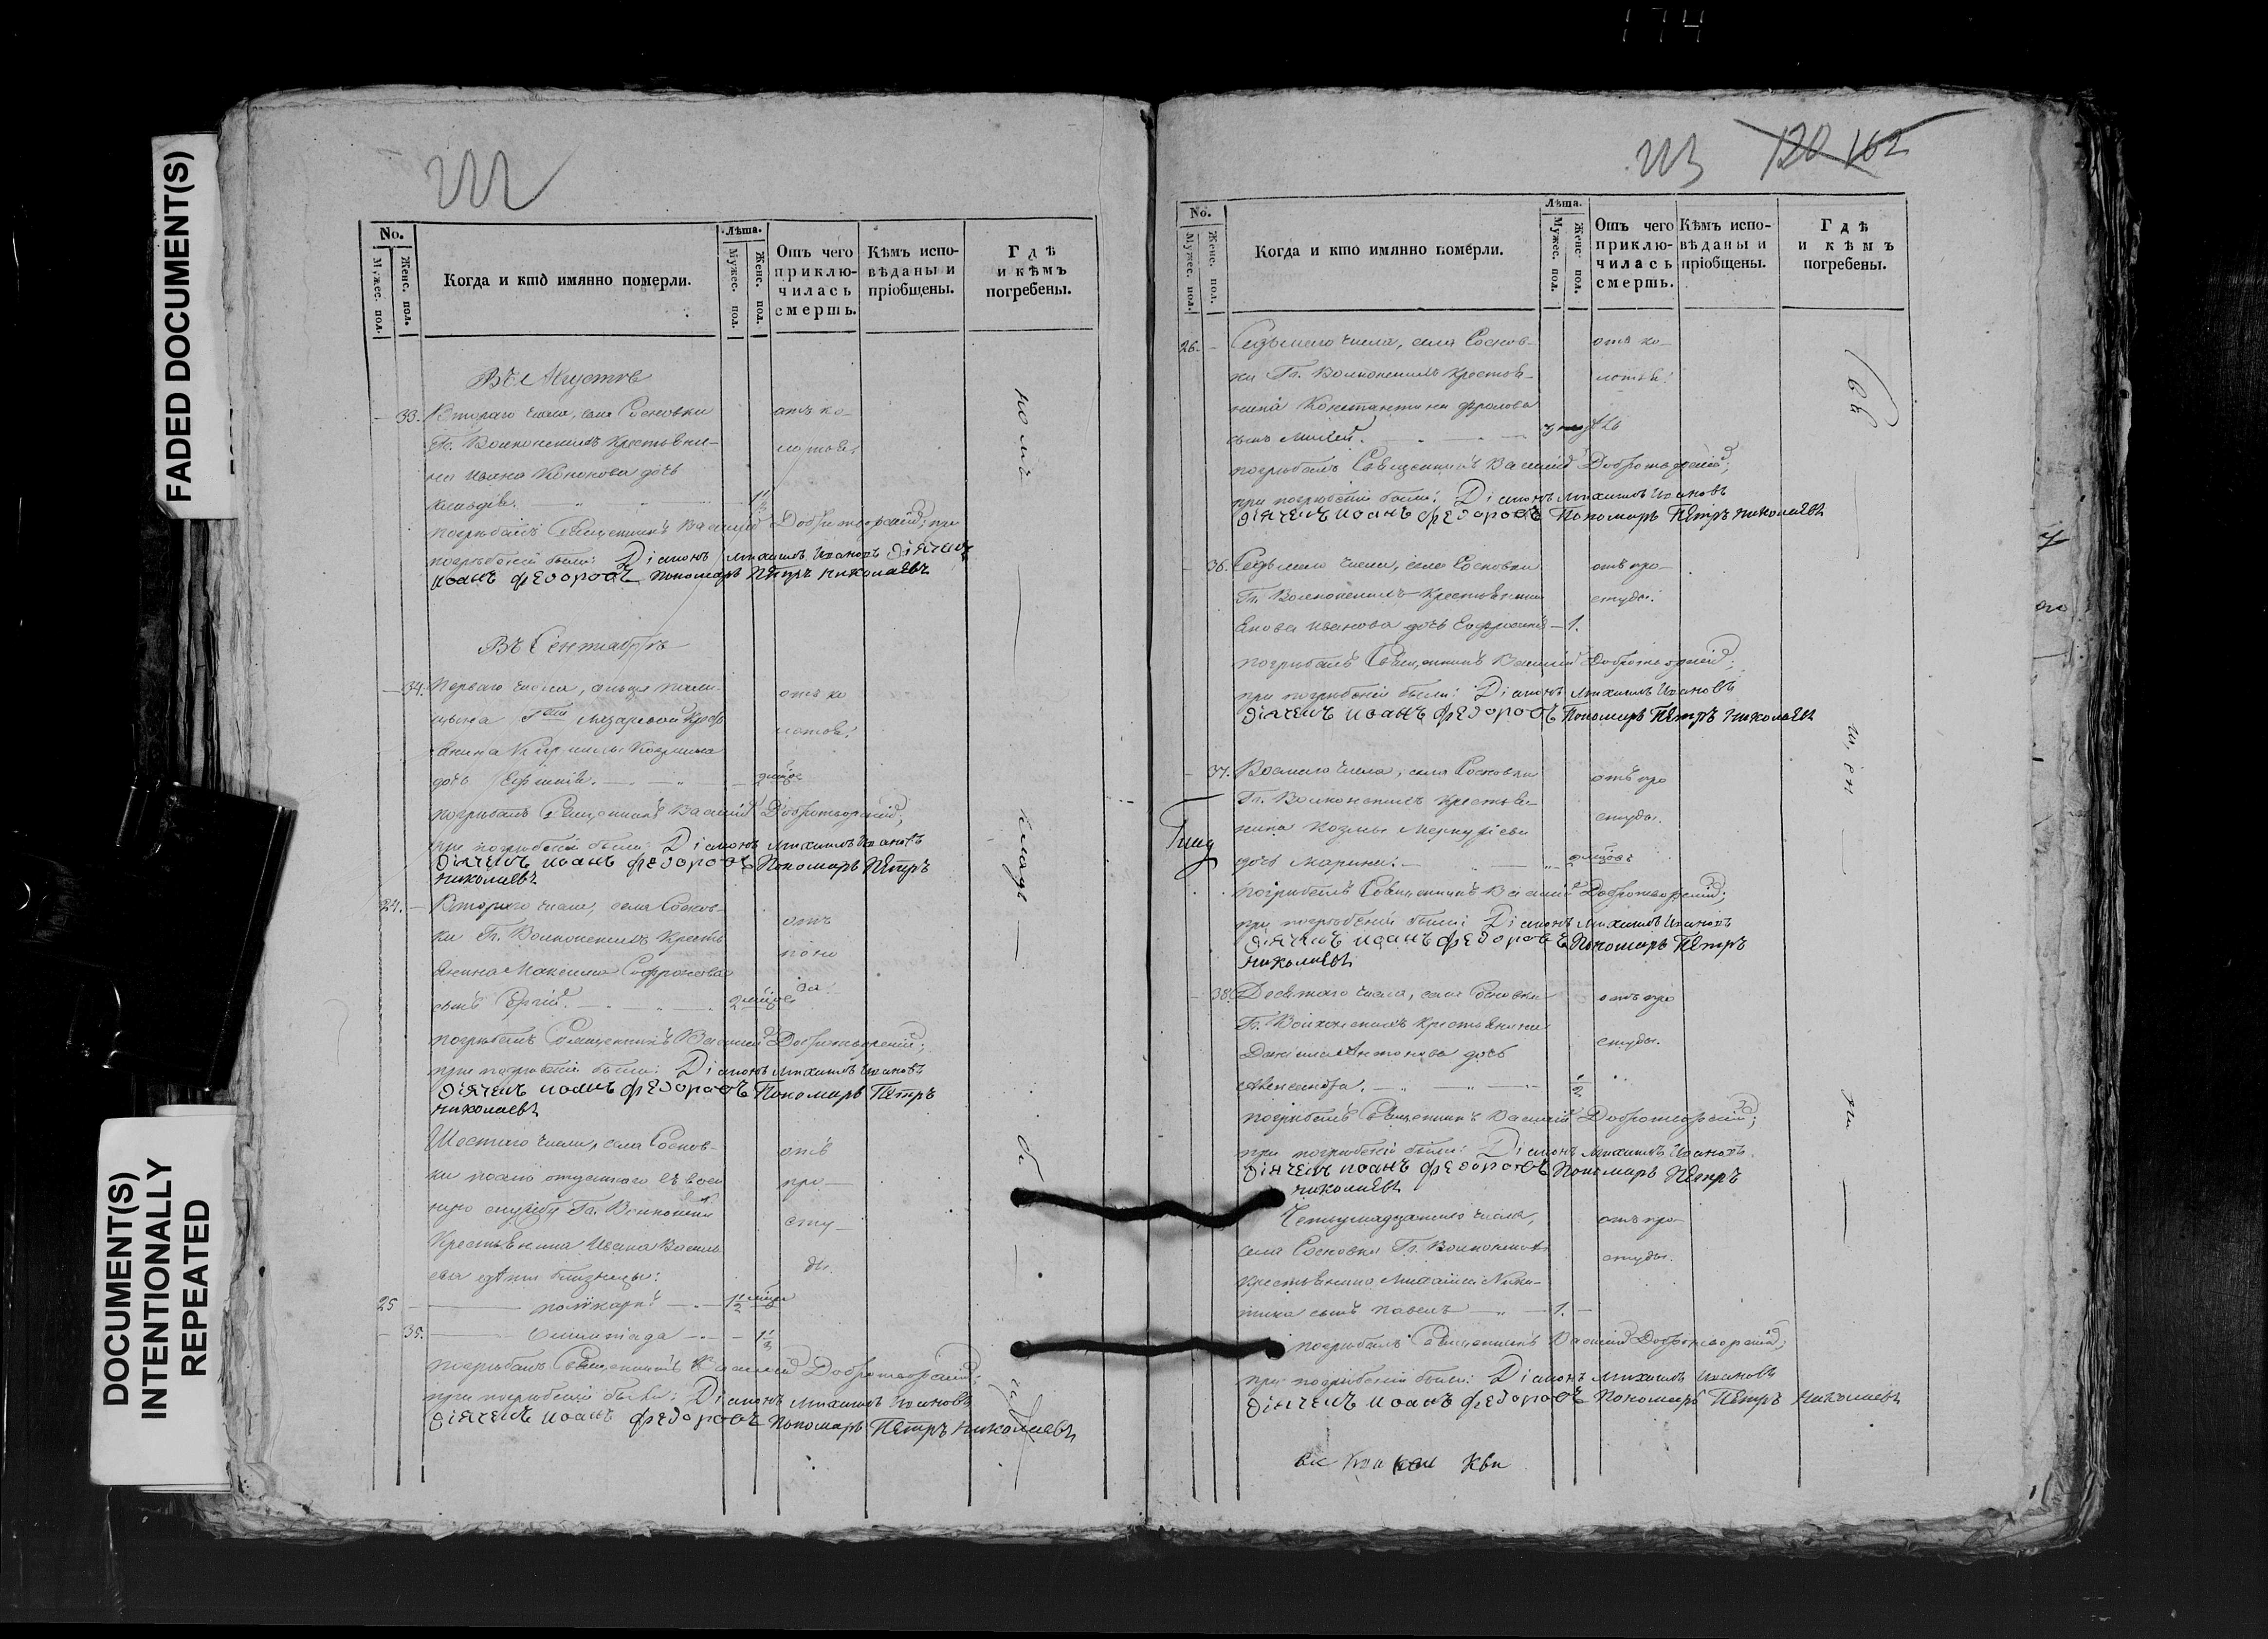 174
FADED DOCUMENT(S)
DOCUMENT(S)
INTENTIONALLY
REPEATED
222
No.
Мужес. пол.
Женс. пол.
Когда и кто имянно померли.
Лѣта.
Мужес. пол.
Женс. пол.
Отъ чего
приклю-
чилась
смерть.
Кѣмъ испо-
вѣданы и
пріобщены.
Гдѣ
и кѣмъ
погребены.
Въ Августѣ
33. Втораго числа, села Сосновки
отъ ко-
Гг. Волконскихъ крестьяни-
лотья.
на Ивана Кононова дочь
1 1/2
погребалъ Священникъ Василій Добротворскій; при
погребеніи были: Діаконъ Михаилъ Ивановъ Діячекъ
Иоанъ Федоровъ Пономарь Петръ Николаевъ
Въ Сентябрѣ
34. Перваго числа, сельца
отъ ко
Лазаревой Крест
лотья.
янина Кирилы Козмина
дочь
погребалъ Священникъ Василій Добротворскій;
при погребеніи были: Діаконъ Михаилъ Ивановъ
Діячекъ Иоанъ Федоровъ Пономарь Петръ
Николаевъ
24. Втораго числа, села Соснов-
отъ
ки Гг. Волконскихъ Кресть
поно
янина Максима Софронова
са.
сынъ Сергій. 2 мѣсяц.
погребалъ Священникъ Василій Добротворскій;
при погребеніи были: Діаконъ Михаилъ Ивановъ
Діячекъ Иоанъ Федоровъ Пономарь Петръ
Николаевъ
Шестаго числа, села Соснов-
отъ
ки отданнаго въ воен
про-
ную службу Гг. Волконски
сту-
Крестьянина Ивана Василь
ды.
ева дѣти близнецы:
25 Поликарпъ
35. Олимпіада
погребалъ Священникъ Василій Добротворскій;
при погребеніи были: Діаконъ Михаилъ Ивановъ
Діячекъ Иоанъ Федоровъ Пономарь Петръ Николаевъ
на
кладъ
би
223
120 162
No.
Мужес. пол.
Женс. пол.
Когда и кто имянно померли.
Лѣта.
Мужес. пол.
Женс. пол.
Отъ чего
приклю-
чилась
смерть.
Кѣмъ испо-
вѣданы и
пріобщены.
Гдѣ
и кѣмъ
погребены.
26. Седьмаго числа, села Соснов-
отъ ко-
ки Гг. Волконскихъ крестья-
лотья.
нина Константина Фролова
сынъ
погребалъ Священникъ Василій Добротворскій;
при погребеніи были: Діаконъ Михаилъ Ивановъ
Діячекъ Иоанъ Федоровъ Пономарь Петръ Николаевъ
36. Седьмаго числа, села Сосновки
отъ про-
Гг. Волконскихъ Крестьянина
студы.
Якова Иванова дочь 1.
погребалъ Священникъ Василій Добротворскій;
при погребеніи были: Діаконъ Михаилъ Ивановъ
Діячекъ Иоанъ Федоровъ Пономарь Петръ Николаевъ
37. Восьмаго числа, села Сосновки
отъ про
Гг. Волконскихъ Крестья-
студы.
нина Козмы Меркуріева
дочь Марина.
погребалъ Священникъ Василій Добротворскій;
при погребеніи были: Діаконъ Михаилъ Ивановъ
Діячекъ Иоанъ Федоровъ Пономарь Петръ
Николаевъ
38. Десятаго числа, села Сосновки
отъ про
Гг. Волконскихъ Крестьянина
студы.
Даніила Антонова дочь
Александра. 1/2
погребалъ Священникъ Василій Добротворскій;
при погребеніи были: Діаконъ Михаилъ Ивановъ
Діячекъ Иоанъ Федоровъ Пономарь Петръ
Николаевъ
Четырнадцатаго числа,
отъ про-
села Сосновки Гг. Волконских
студы.
крестьянина Михаила Ники-
тина сынъ Павелъ 1.
погребалъ Священникъ Василій Добротворскій;
при погребеніи были: Діаконъ Михаилъ Ивановъ
Діячекъ Иоанъ Федоровъ Пономарь Петръ Николаевъ